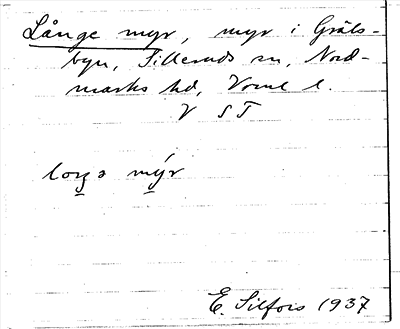 Långe myr, myr i Gräls-
byn, Silleruds sn, Nord-
marks hd, Vrml l.
V S T
loŋə my̆r
E. Silfors 1937